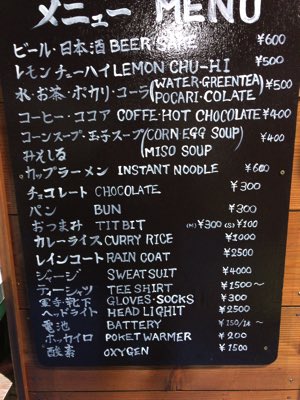 メニュー MENU
ビール・日本酒 BEER/SAKE ¥600
レモンチューハイ LEMON CHU-HI ¥500
水・お茶・ポカリ・コーラ (WATER・GREENTEA POCARI・COLATE) ¥500
コーヒー・ココア COFFE・HOT CHOCOLATE ¥400
コーンスープ・玉子スープ (CORN EGG SOUP) ¥400
みえしる (MISO SOUP)
カップラーメン INSTANT NOODLE ¥600
チョコレート CHOCOLATE ¥300
パン BUN ¥300
おつまみ TITBIT (M)¥300 (S)¥100
カレーライス CURRY RICE ¥1000
レインコート RAIN COAT ¥2500
ジャージ SWEAT SUIT ¥4000
ティーシャツ TEE SHIRT ¥1500〜
軍手 靴下 GLOVES・SOCKS ¥300
ヘッドライト HEAD LIGHIT ¥2500
電池 BATTERY 〜
ホッカイロ POKET WARMER ¥200
酸素 OXYGEN ¥1500